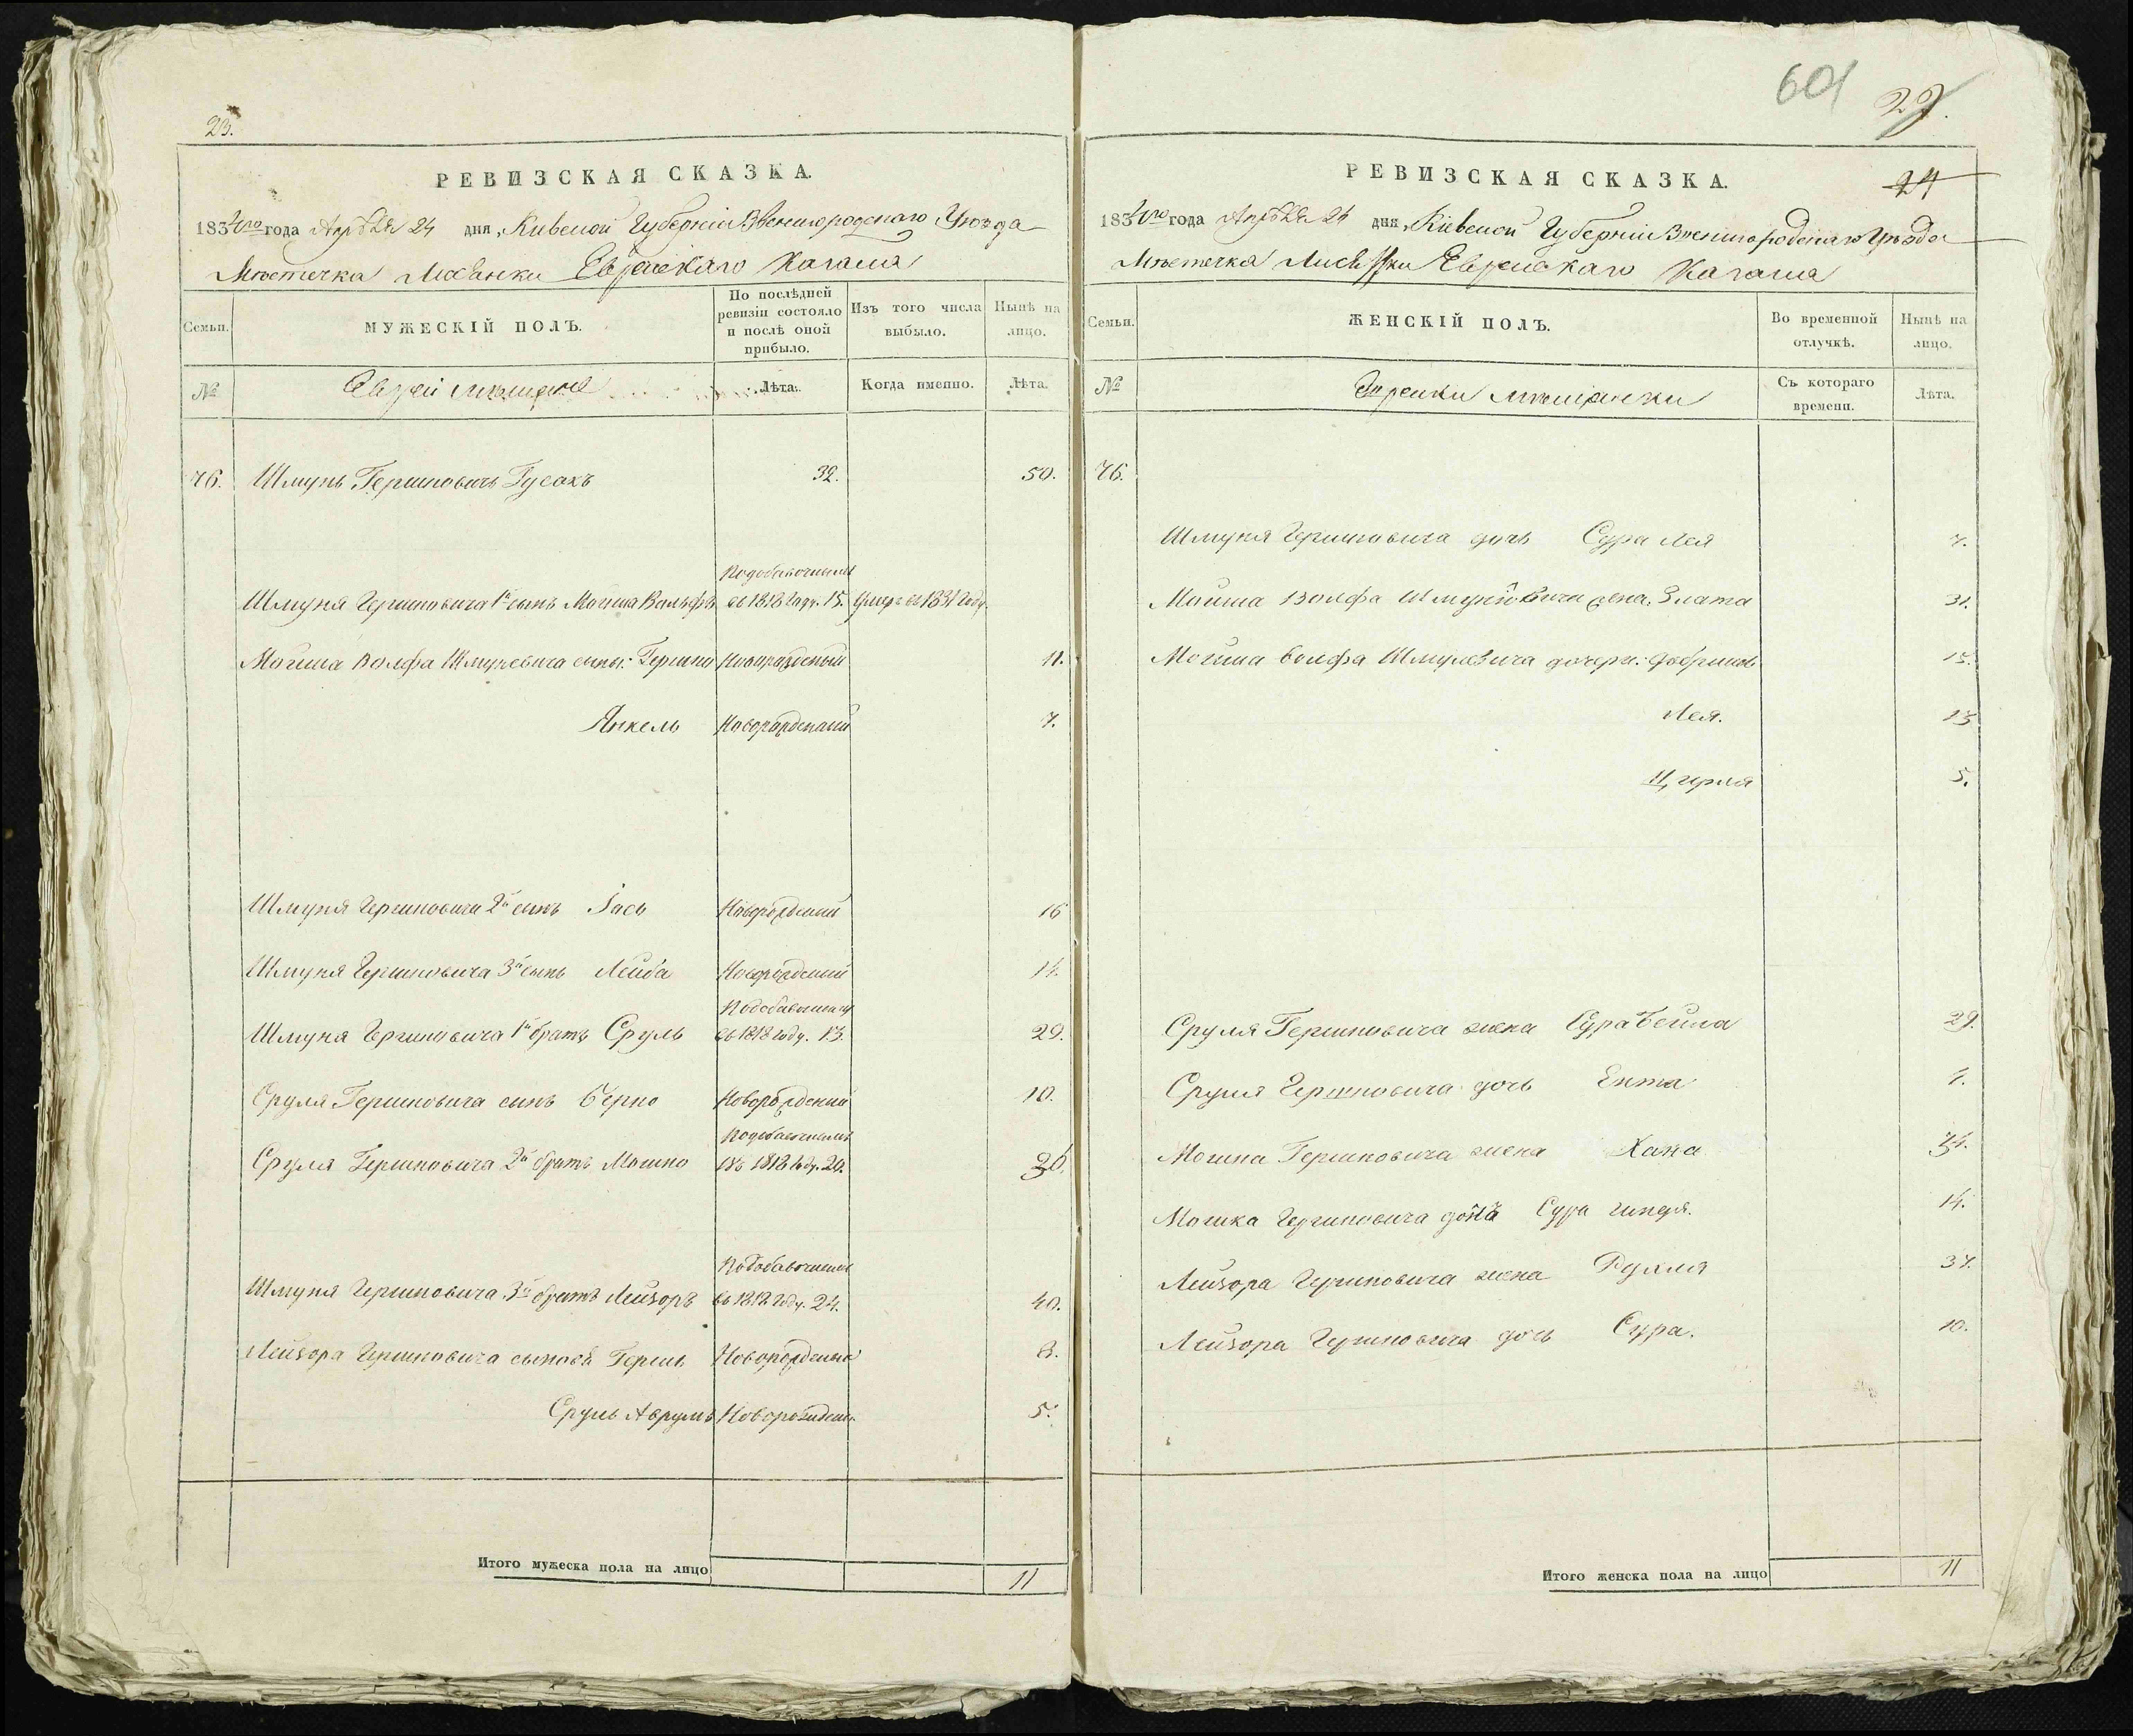 23.
РЕВИЗСКАЯ СКАЗКА.
1834го года Апрѣля 24 дня, Киевской Губерніи Звенигородскаго Уѣзда
Мѣстечка Лисянки Еврейскаго Кагала
Семьи.
МУЖЕСКІЙ ПОЛЪ.
По послѣдней ревизіи состояло и послѣ оной прибыло.
Изъ того числа выбыло.
Нынѣ на лицо.
№
Евреи мѣщане
Лѣта.
Когда именно.
Лѣта.
76. Шмунь Гершковичъ Гусакъ 32. 50.
Подобавочнымъ
Шмуня Гершковича 1й сынъ Мошка Вольфъ въ 1818 году. 15. Умеръ въ 1831 году.
Мошка Волфа Шмулевича сыны: Гершко Новорожденый 11.
Янкель Новорожденый 7.
Шмуня Гершковича 2й сынъ Іось Новорожденый 16
Шмуня Гершковича 3й сынъ Лейба Новорожденый 14.
Подобавочному
Шмуня Гершковича 1й братъ Сруль въ 1818 году. 13. 29.
Сруля Гершковича сынъ Берко Новорожденый 10.
Подобавочнымъ
Сруля Гершковича 2й братъ Мошко въ 1818 году. 20. 36.
Подобавочнымъ
Шмуня Гершковича 3й братъ Лейзоръ въ 1818 году. 24. 40.
Лейзора Гершковича сыновя Гершъ Новорожденый 8.
Сруль Аврумъ Новорожден. 5.
Итого мужеска пола на лицо 11
601
29.
24
РЕВИЗСКАЯ СКАЗКА.
1834го года Апрѣля 24 дня, Кіевской Губерніи Звенигородскаго Уѣзда
Мѣстечка Лисянки Еврейскаго Кагала
Семьи.
ЖЕНСКІЙ ПОЛЪ.
Во временной отлучкѣ.
Нынѣ на лицо.
№
Еврейки мѣщанки
Съ котораго времени.
Лѣта.
76.
Шмуня Гершковича дочь Сура Лея 7.
Мошка Волфа Шмуньовича жена Злата 31.
Мошка Волфа Шмулевича дочери: Двбришъ 15.
Лея. 13
Цирля 5.
Сруля Гершковича жена Сура Бейла 29.
Сруля Гершковича дочь Ента 1.
Мошка Гершковича жена Хана 34.
Мошка Гершковича дочъ Сура Гиндя. 14.
Лейзора Гершковича жена Рухля 37.
Лейзора Гершковича дочь Сура. 10.
Итого женска пола на лицо 11